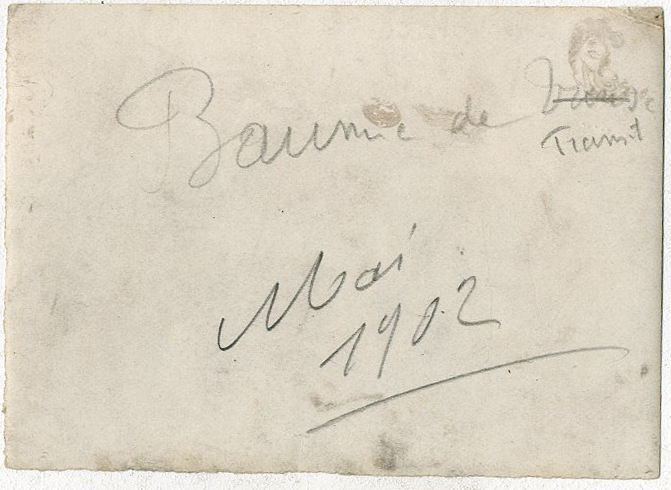 Baume de
Transit
Mai
1902